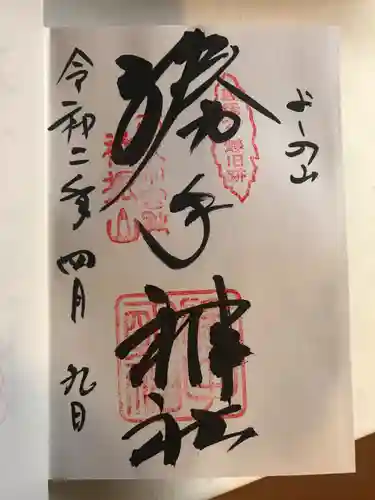 よしの山
勝手神社
令和二年四月九日